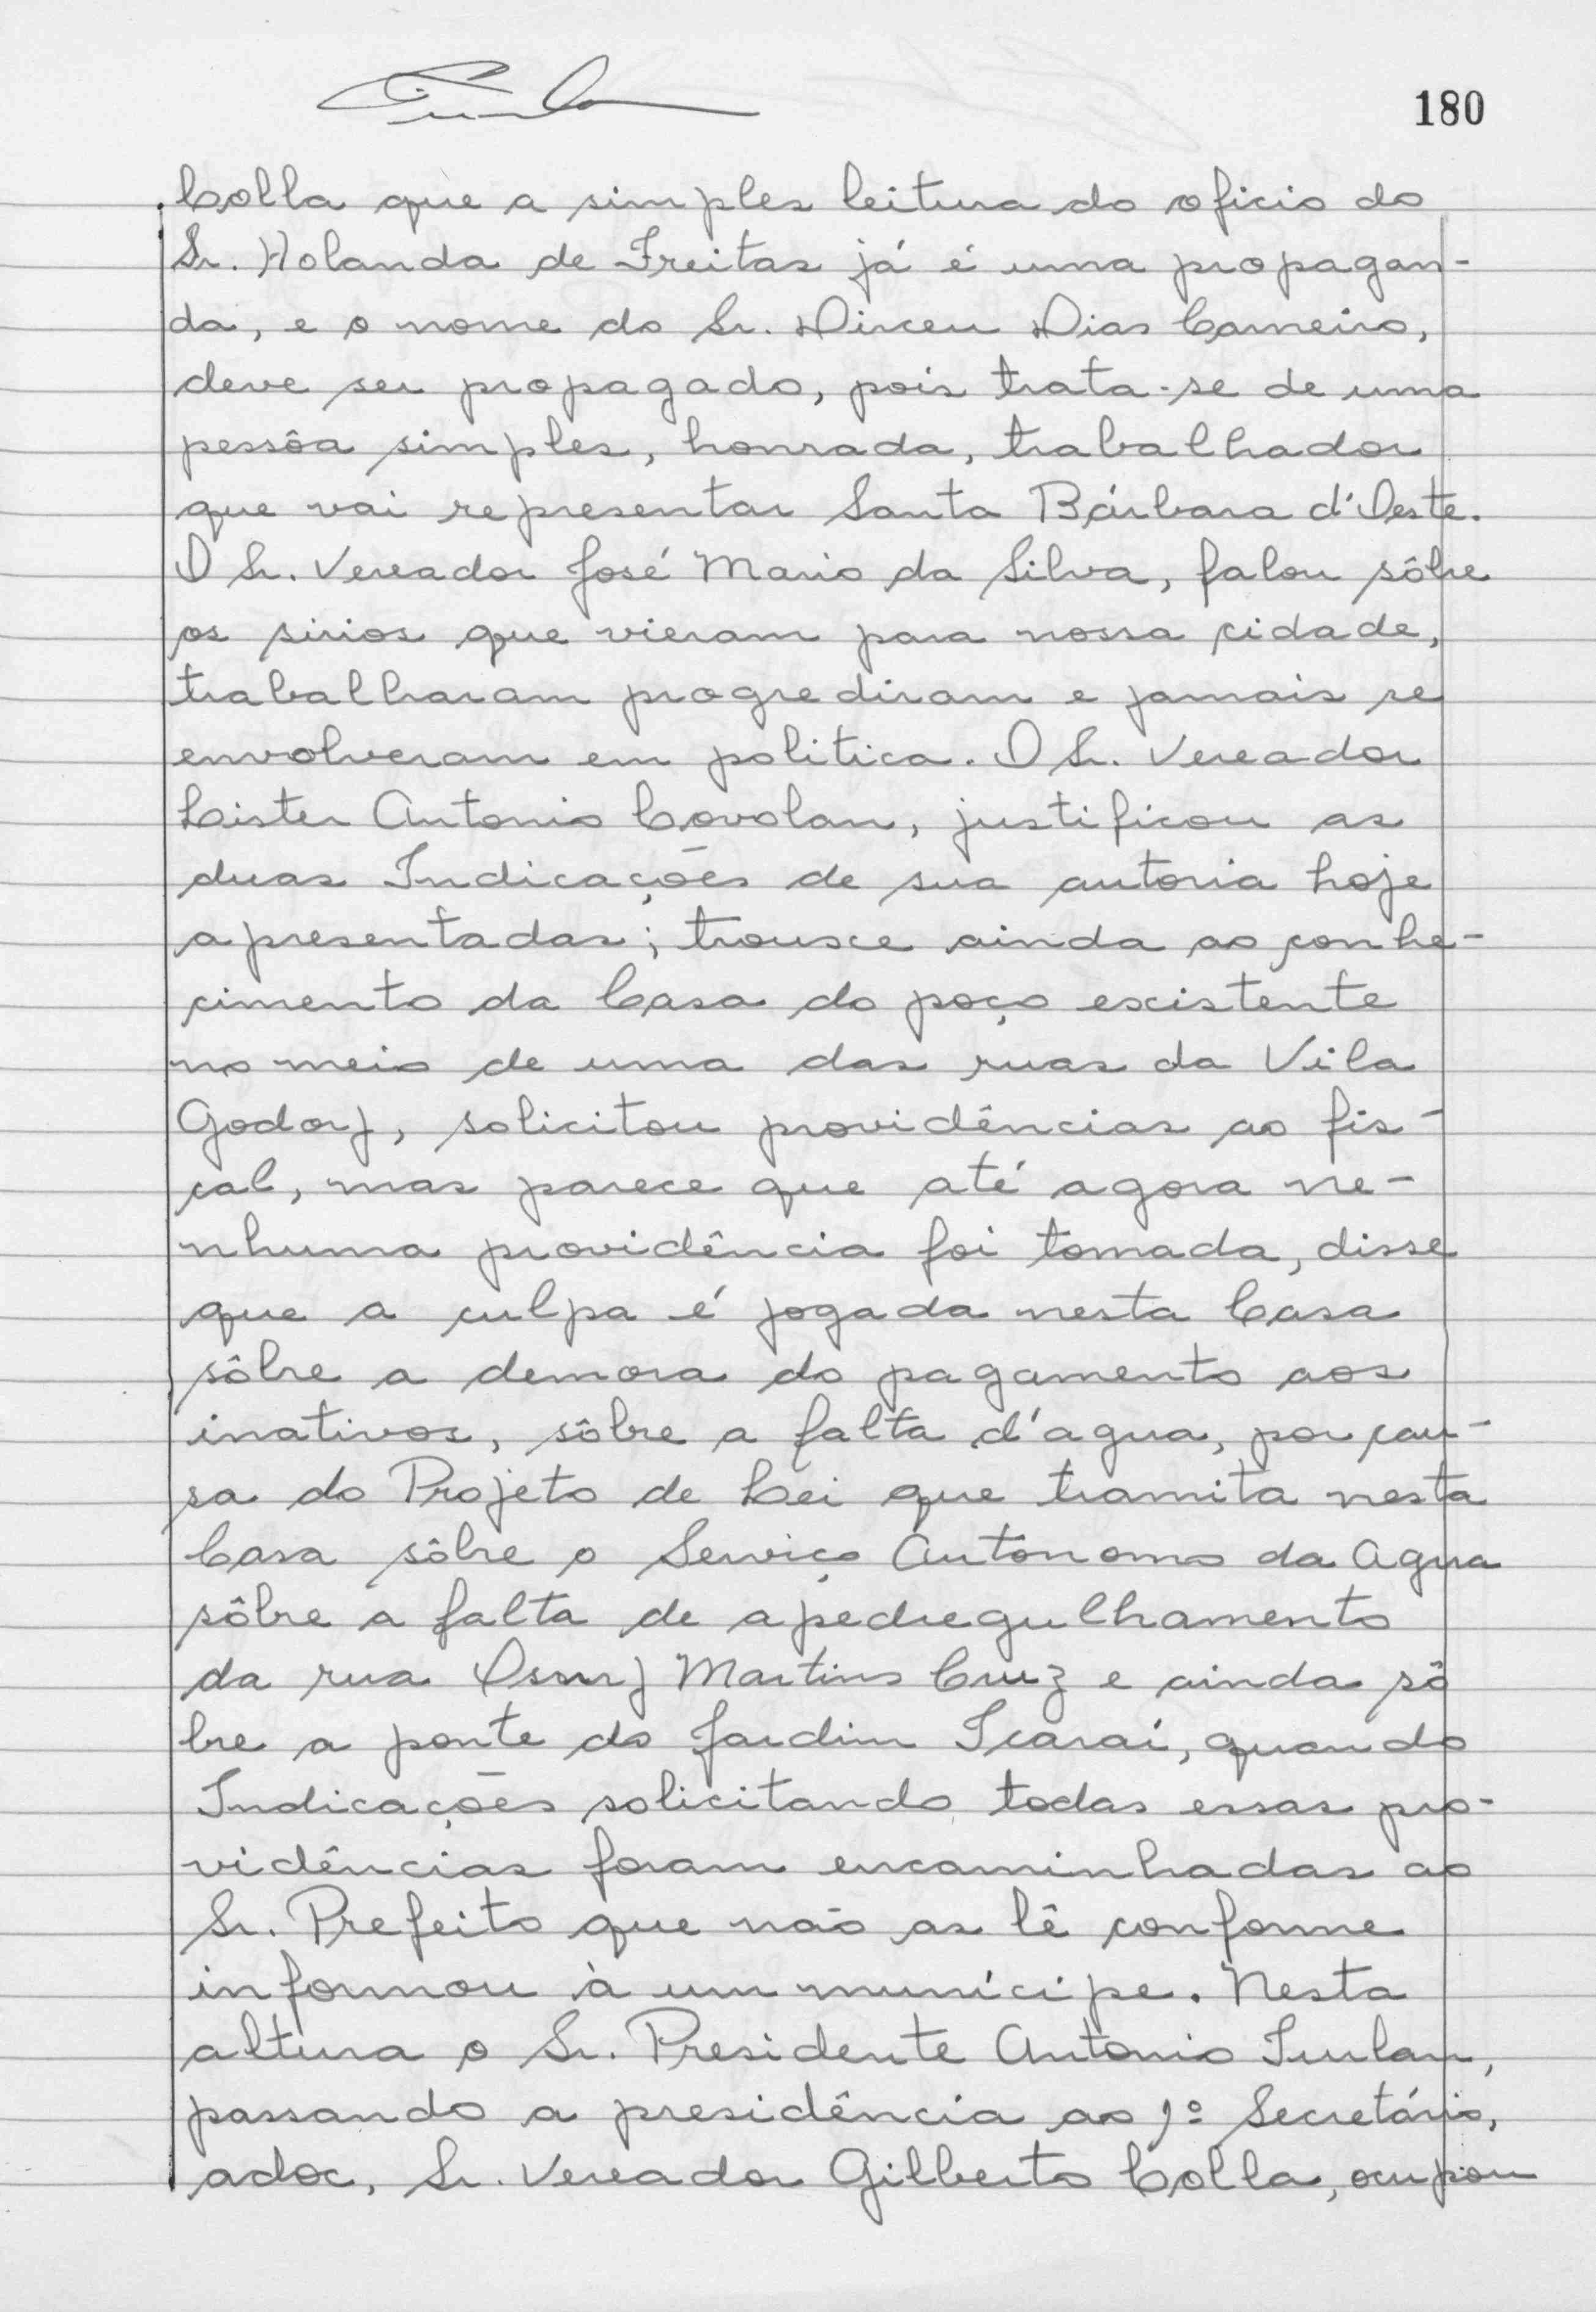 180
Colla que a simples leitura do oficio do
Sr. Holanda de Freitas já é uma propagan-
da, e o nome do Sr. Dirceu Dias Carneiro,
deve ser propagado, pois trata-se de uma
pessôa simples, honrada, trabalhador
que vai representar Santa Bárbara d'Oeste.
O Sr. Vereador José Maria da Silva, falou sôbre
os sirios que vieram para nossa cidade,
trabalharam progrediram e jamais se
envolveram em politica. O Sr. Vereador
Lister Antonio Covolan, justificou as
duas Indicações de sua autoria hoje
apresentadas; trouxe ainda ao conhe-
cimento da Casa do poço existente
no meio de uma das ruas da Vila
Godoy, solicitou providências ao fis-
cal, mas parece que até agora ne-
nhuma providência foi tomada, disse
que a culpa é jogada nesta Casa
sôbre a demora do pagamento aos
inativos, sôbre a falta d'agua, por cau-
sa do Projeto de Lei que tramita nesta
Casa sôbre o Serviço Autônomo da Agua
sôbre a falta de apedregulhamento
da rua Osmy Martins Cruz e ainda sô
bre a ponte do Jardim Icaraí, quando
Indicações solicitando todas essas pro-
vidências foram encaminhadas ao
Sr. Prefeito que não as lê conforme
informou à um munícipe. Nesta
altura o Sr. Presidente Antonio Furlan,
passando a presidência ao 1º Secretário,
adoc, Sr. Vereador Gilberto Colla, ocupou